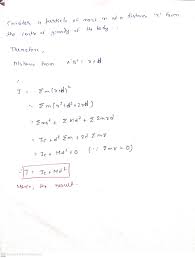 Consider a particle of mass m at a distance 'x' from
the centre of gravity of the body.
Therefore,
Distance from x'x' = x+d
∴
I = Σm(x+d)²
= Σm(x²+d²+2xd)
= Σmx² + Σmd² + Σ2mxd
= IC + d² Σm + 2d Σmx
= IC + Md² + 0 (∵ Σmx = 0)
∴ I = IC + Md²
Hence, the result.